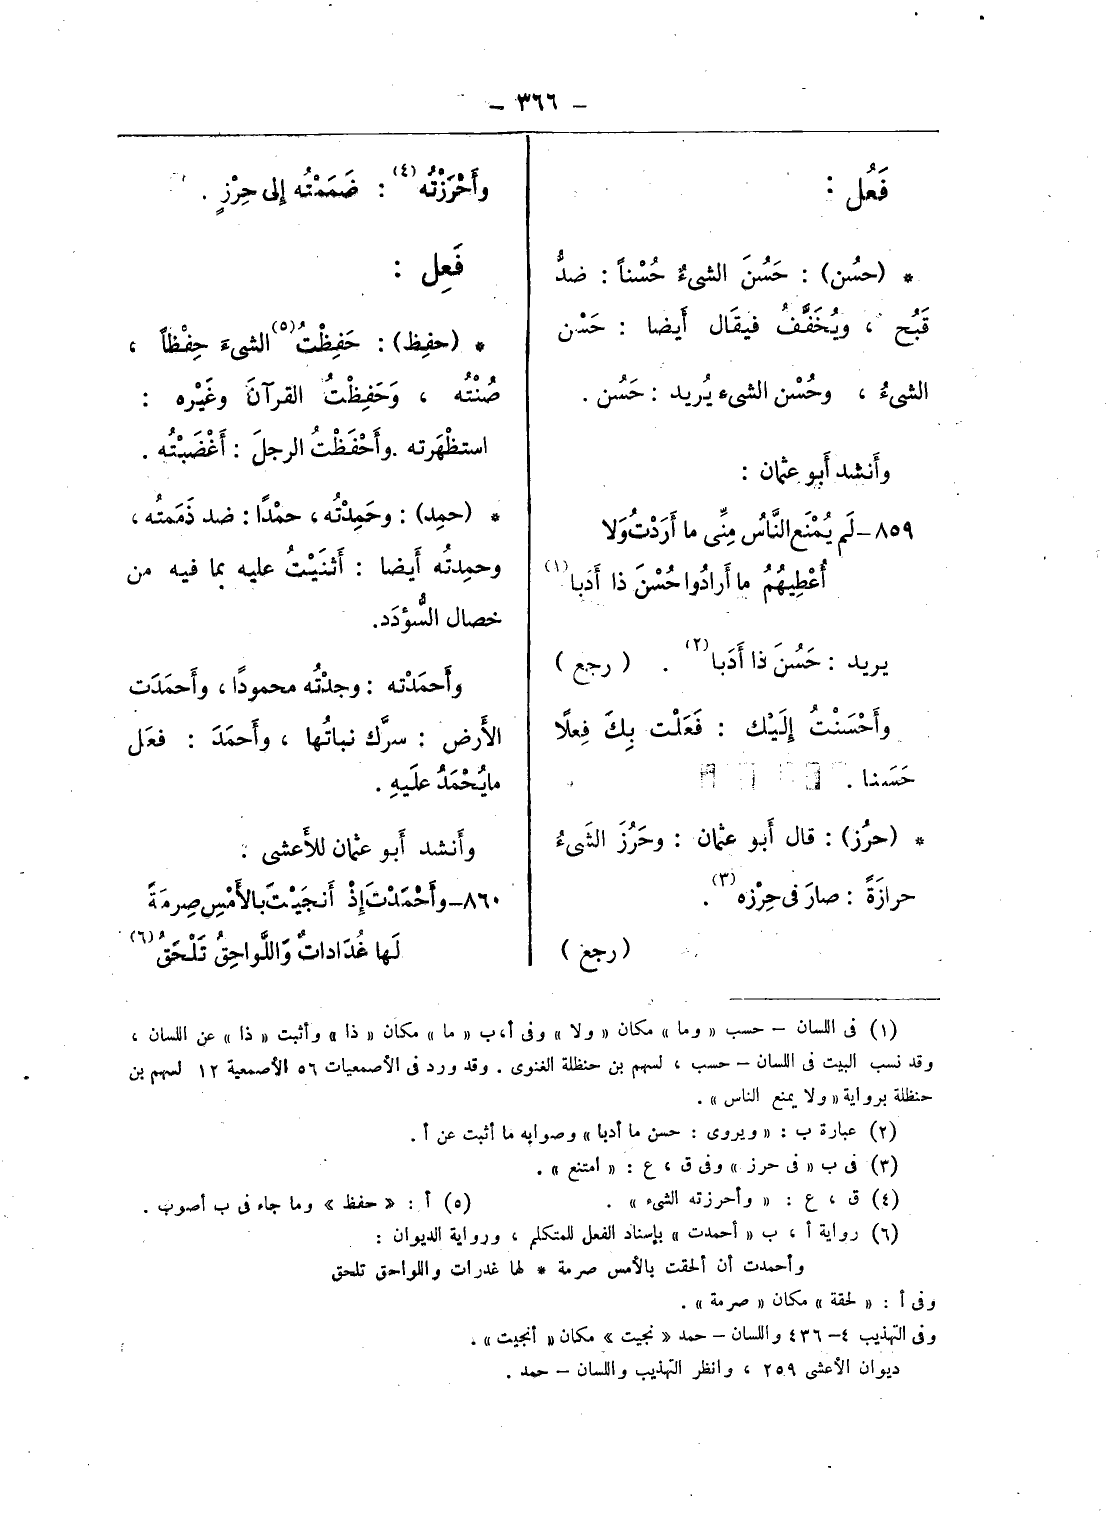 – ٣٦٦ –
فَعُل :
* (حسُن) : حَسُنَ الشىءُ حُسْناً : ضدُّ
قَبُح ، ويُخَفَّفُ فيقَال أَيضا : حَسْن
الشىءُ ، وحُسْن الشىء يُريد : حَسُن .
وأَنشد أَبو عثمان :
٨٥٩–لَم يُمْنَع النَّاسُ مِنِّى ما أَرَدْتُ وَلا
أُعْطِيهُمُ ما أَرادُوا حُسْنَ ذا أَدَبا(١)
يريد : حَسُنَ ذا أَدَبا(٢) . ( رجع )
وأَحْسَنْتُ إِلَيْك : فَعَلْت بِكَ فِعلًا
حَسَنا .
* (حرُز) : قال أَبو عثمان : وحَرُزَ الشَىءُ
حرازَةً : صارَ فى حِرْزه(٣) .
( رجع )
وأَحْرَزْتُه(٤) : ضَمَمْتُه إلى حِرْزٍ .
فَعِل :
* (حفِظ) : حَفِظْتُ(٥) الشىءَ حِفْظاً ،
صُنْتُه ، وَحَفِظْتُ القرآنَ وغَيْره :
استظْهَرته . وأَحْفَظْتُ الرجلَ : أَغْضَبْتُه .
* (حمِد) : وحَمِدْتُه ، حمْدًا : ضد ذَمَمتُه ،
وحمِدتُه أَيضا : أَثنَيْتُ عليه بما فيه من
خصال السُّؤدَد.
وأَحمَدْته : وجدْتُه محمودًا ، وأَحمَدَت
الأَرض : سرَّك نباتُها ، وأَحمَدَ : فعَل
مايُحْمَدُ علَيهِ .
وأَنشد أَبو عثمان للأَعشى :
٨٦٠–وأَحْمَدْتَ إِذْ أَنجَيْتَ بالأَمْسِ صِرمَةً
لَها غُدَاداتٌ وَاللَّواحِقُ تَلْحَقُ(٦)
(١) فى اللسان – حسب « وما » مكان « ولا » وفى أ،ب « ما » مكان « ذا » وأثبت « ذا » عن اللسان ،
وقد نسب البيت فى اللسان – حسب ، لسهم بن حنظلة الغنوى . وقد ورد فى الأصمعيات ٥٦ الأصمعية ١٢ لسهم بن
حنظلة برواية « ولا يمنع الناس » .
(٢) عبارة ب : « ويروى : حسن ما أدبا » وصوابه ما أثبت عن أ .
(٣) فى ب « فى حرز » وفى ق ، ع : « امتنع » .
(٤) ق ، ع : « وأحرزته الشىء » . (٥) أ : « حفظ » وما جاء فى ب أصوب .
(٦) رواية أ ، ب « أحمدت » بإسناد الفعل للمتكلم ، ورواية الديوان :
وأحمدت أن ألحقت بالأمس صرمة * لها غدرات واللواحق تلحق
وفى أ : « لحقة » مكان « صرمة » .
وفى التهذيب ٤–٤٣٦ واللسان – حمد « نجيت » مكان « أنجيت » .
ديوان الأعشى ٢٥٩ ، وانظر التهذيب واللسان – حمد .